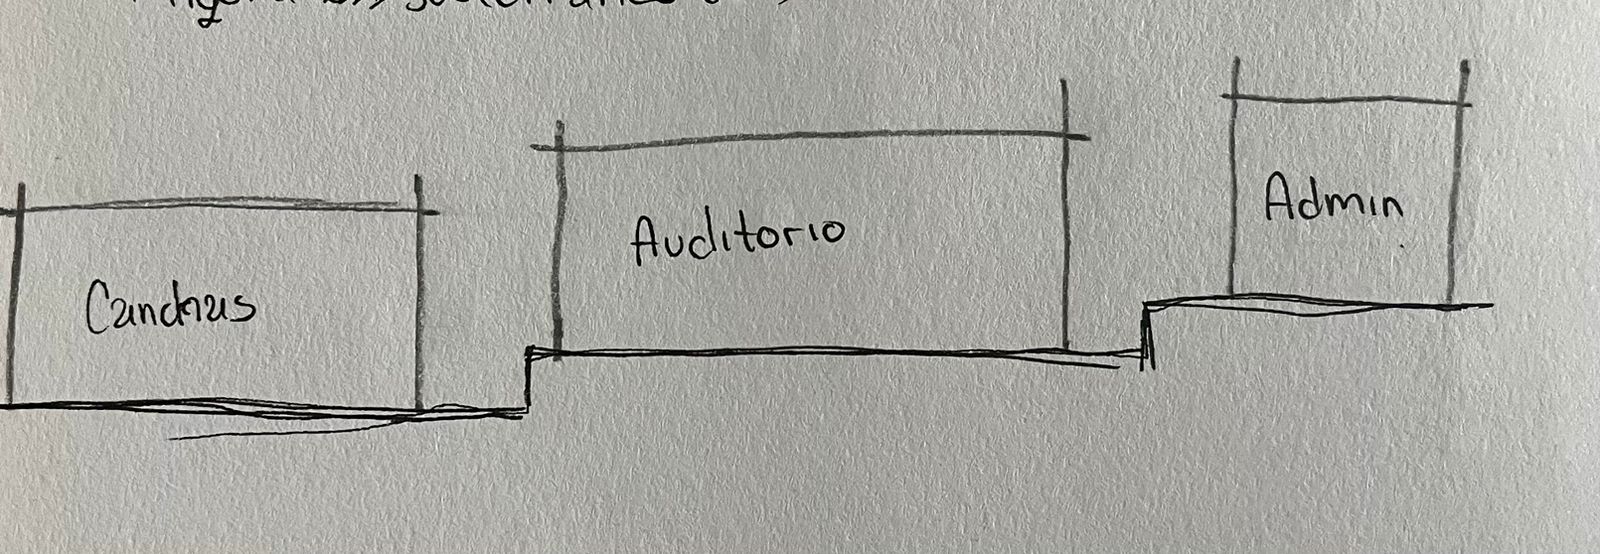 Canchas
Auditorio
Admin